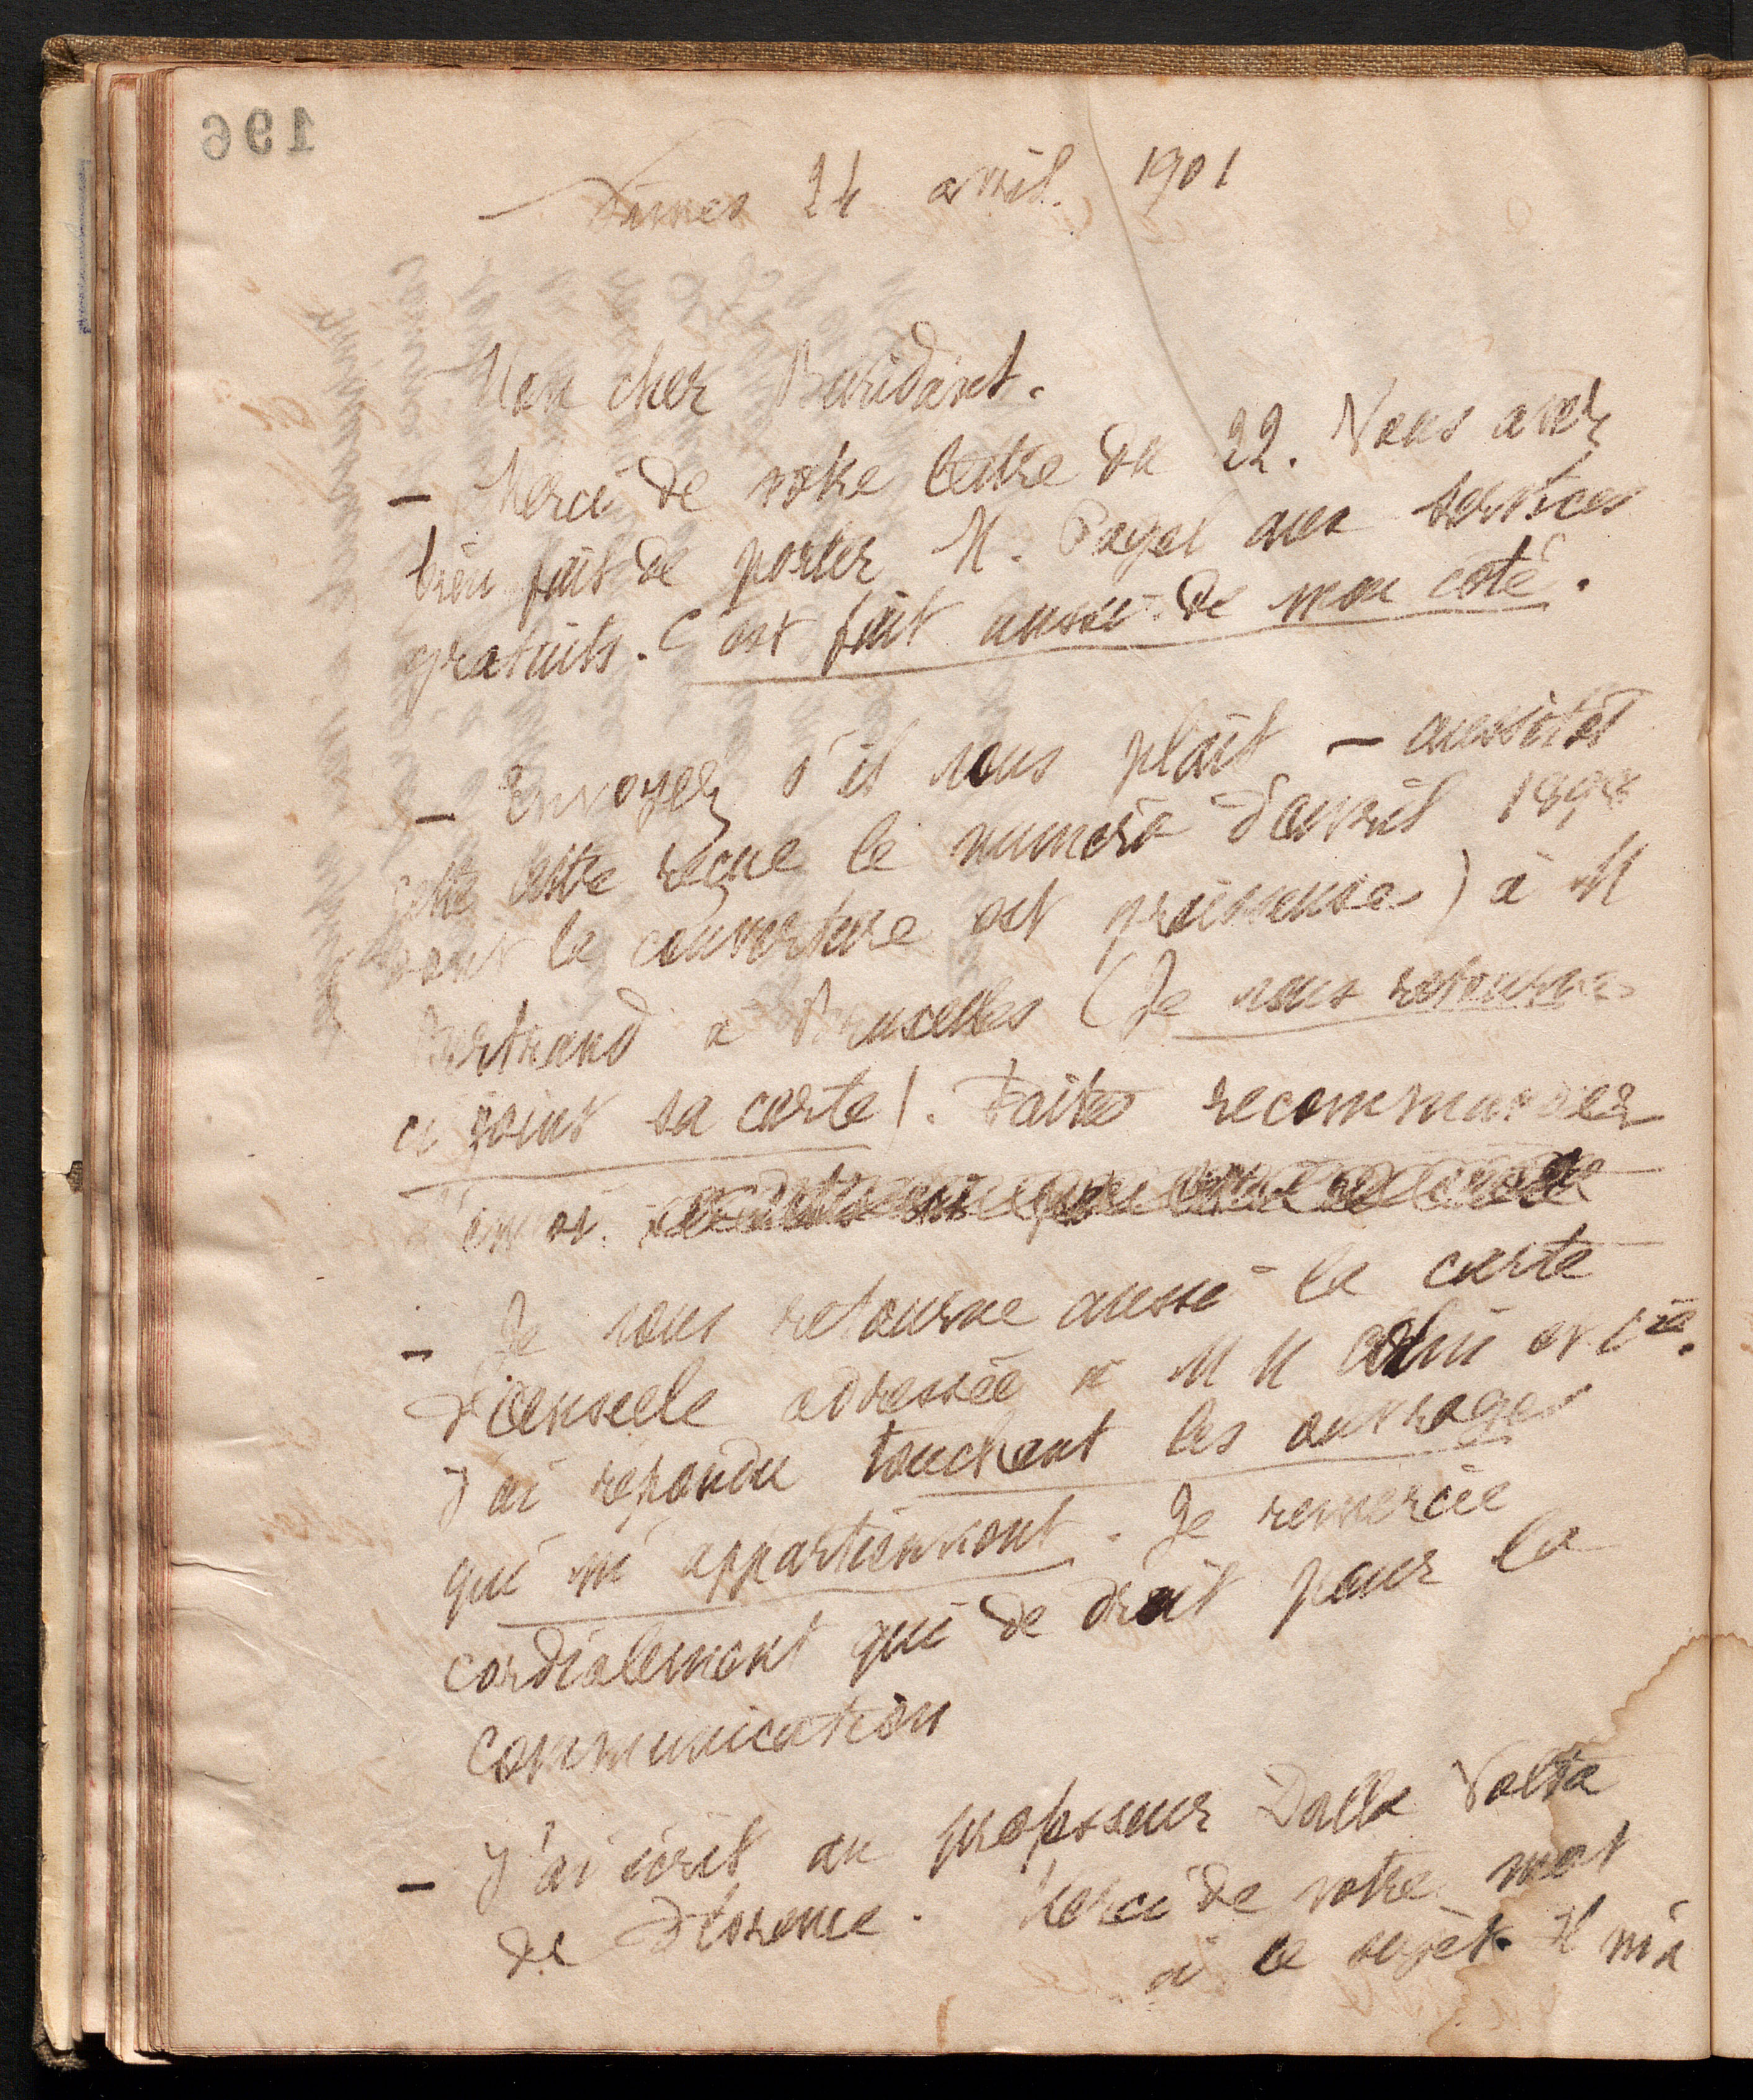 196
24 avril. 1901
Mon cher Buridant.
— Merci de votre lettre du 22. Vous avez
bien fait de porter M. Pagel aux services
gratuits. C'est fait aussi de mon côté.
— Envoyez s'il vous plaît — aussitôt
cette lettre reçue le numéro d'avril 1898
dont la couverture est graisseuse) à M
Bertrand à Bruxelles (Je vous retourne
ci joint sa carte). Faites recommander
l'envoi.
— Je vous retourne aussi la carte
adressée à MM et Cie.
J'ai répondu touchant les ouvrages
qui m'appartiennent. Je remercie
cordialement qui de droit pour la
communication
— J'ai écrit au professeur Dalla Volta
de Florence. Merci de votre mot
à ce sujet. Il m'a